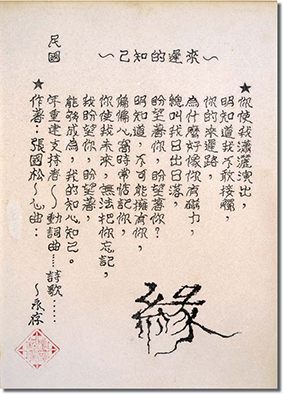 ～己知的遲來～
民國
★你使我瀟灑演出，
明知道我不敢接觸，
你的來遲路，
為什麼好像你有磁力，
總叫我日出日落，
盼望著你，盼望著你？
明知道，不可能擁有你，
偏偏心窩時常惦記你，
你使我未來，無法把你忘記，
我盼望你，盼望著，
能夠成為，我的知心知己。
年重建支持者～動詞曲……詩歌……
★作者：張國松～心曲：
～永存
緣